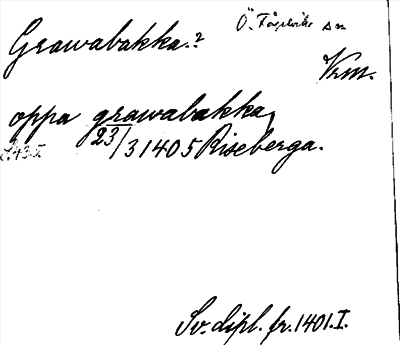 Ö. Fågelvik sn
Grawabakka.?
Vrm.
oppa grawabakka,
23/3 1405 Riseberga.
Sv. dipl. fr. 1401. I.